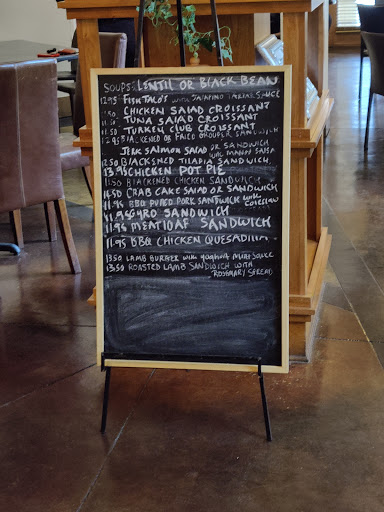 SOUPS: LENTIL OR BLACK BEAN
12.95 FISH TACOS WITH JALAPINO TARTAR SAUCE
11.50 CHICKEN SALAD CROISSANT
11.50 TUNA SALAD CROISSANT
11.50 TURKEY CLUB CROISSANT
12.95 BLACKENED OR FRIED GROUPER SANDWICH
JERK SALMON SALAD OR SANDWICH
WITH MANGO SALSA
12.50 BLACKENED TILAPIA SANDWICH
13.95 CHICKEN POT PIE
11.50 BLACKENED CHICKEN SANDWICH
11.50 CRAB CAKE SALAD OR SANDWICH
11.95 BBQ PULLED PORK SANDWICH WITH
COLESLAW
11.95 GYRO SANDWICH
11.95 MEATLOAF SANDWICH
11.95 BBQ CHICKEN QUESADILLA
13.50 LAMB BURGER WITH YOGHURT MINT SAUCE
13.50 ROASTED LAMB SANDWICH WITH
ROSEMARY SPREAD